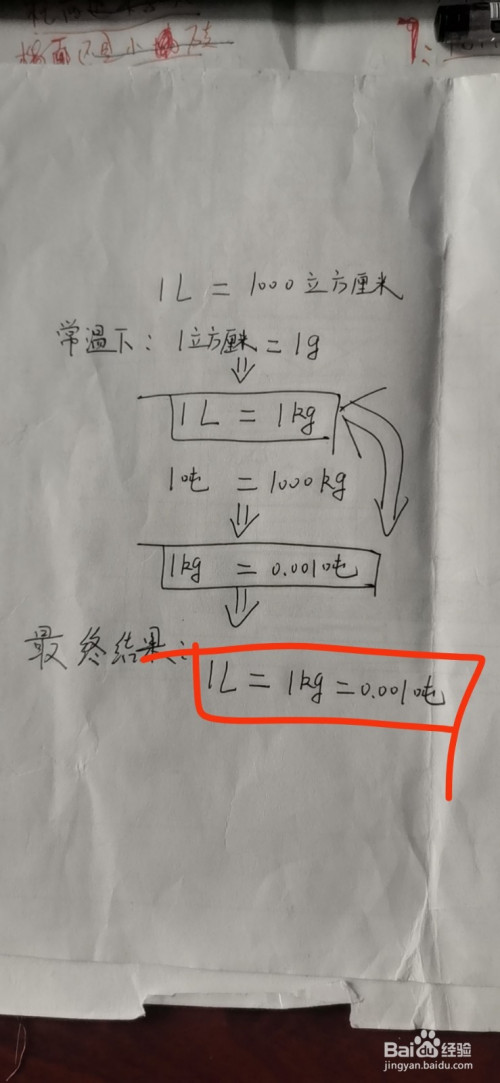 1L = 1000立方厘米
常温下: 1立方厘米 = 1g
1L = 1kg
1吨 = 1000kg
1kg = 0.001吨
最终结果:
1L = 1kg = 0.001吨
Baidu经验
jingyan.baidu.com